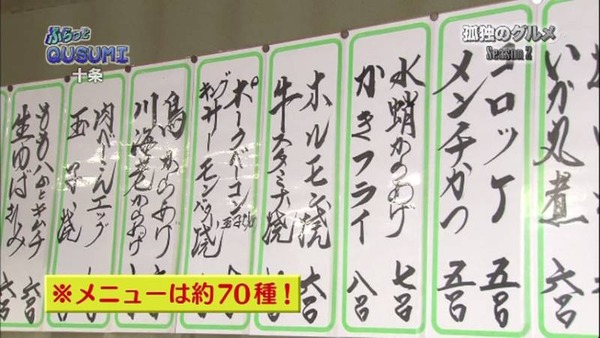 ふらっと
QUSUMI
十条
孤独のグルメ
Season 2
いか丸煮 六百
コロッケ 五百
メンチかつ 五百
水蛸からあげ 七百
かきフライ 八百
ホルモン焼 六百
牛スタミナ焼 六百
ポークベーコン
キングサーモン
鳥からあげ
川海老からあげ
エッグ
玉子焼
キムチ
生ゆば刺み 六百
※メニューは約70種！